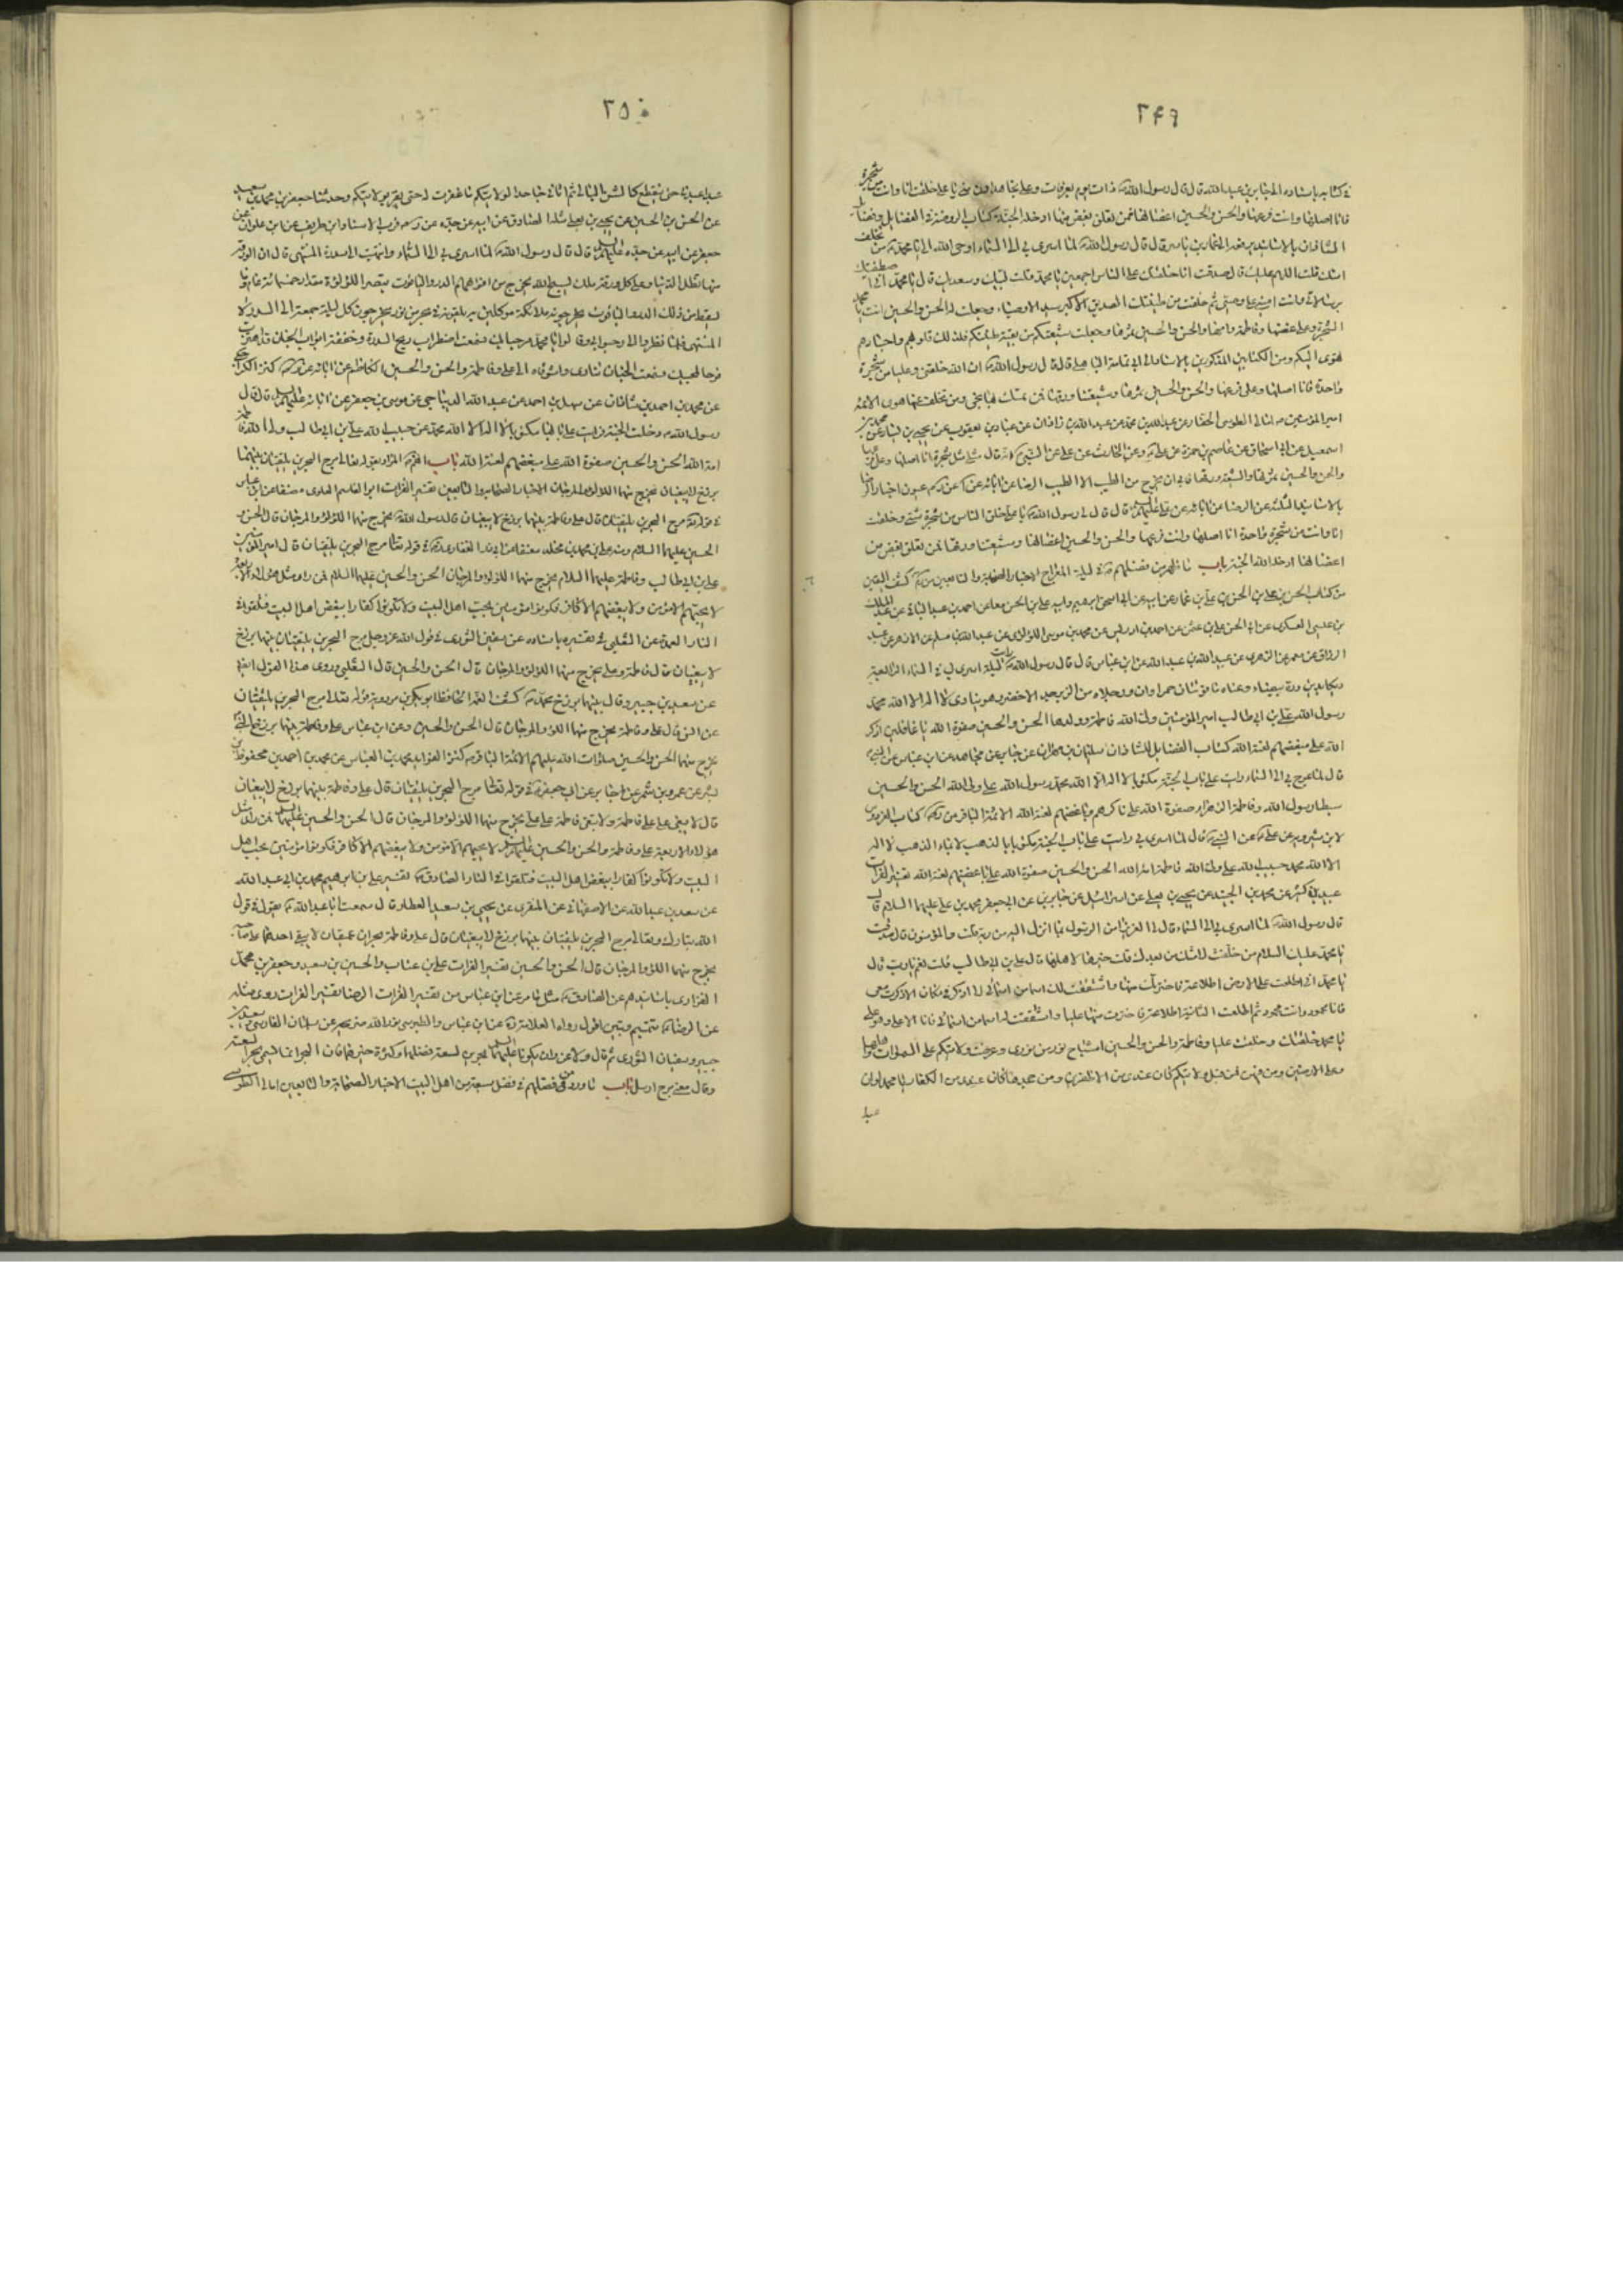 ٢٤٩
في كتابه باسناده الى جابر بن عبد الله قال قال رسول الله ذات يوم بعرفات وعلي تجاهه يا علي خلقت انا وانت من شجرة
فانا اصلها وانت فرعها والحسن والحسين اغصانها فمن تعلق بغصن منها ادخله الجنة كتاب الروضة والفضائل
لشاذان بالاسانيد عمار بن ياسر قال قال رسول الله لما اسرى بي الى السماء اوحى الله الي يا محمد من تخلف
امتك قلت اللهم عليك قال صدقت انا خليفتك على الناس اجمعين يا محمد قلت لبيك وسعديك قال يا محمد اني اصطفيتك
برسالاتي وانت اميني على وحيي ثم خلقت من طينتك الصديق الاكبر سيد الاوصياء وجعلت له الحسن والحسين انت يا محمد
الشجرة وعلي غصنها وفاطمة ورقها والحسن والحسين ثمرها وجعلت شيعتكم من بقية طينتكم فلذلك قلوبهم واجسادهم
تهوى اليكم ومن الكتابين المذكورين بالاسناد الى ابي امامة الباهلي قال قال رسول الله ان الله خلقني وعليا من شجرة
واحدة فانا اصلها وعلي فرعها والحسن والحسين ثمرها وشيعتنا ورقها فمن تمسك بها نجى ومن تخلف عنها هوى الائمة
امير المؤمنين امالي الطوسي الحفار عن عبد الله بن محمد عن عبد الله بن زاذان عن عباد بن يعقوب عن يحيى بن بشار عن محمد بن
اسمعيل عن ابي اسحاق عن عاصم بن حمزة عن علي وعن الحارث عن علي عن النبي انه قال مثلي مثل شجرة انا اصلها وعلي فرعها
والحسن والحسين ثمرها والشيعة ورقها فابى ان يخرج من الطيب الا الطيب الرضا عن ابائه عيون اخبار الرضا
بالاسانيد الثلثة عن الرضا عن ابائه عن علي عليهم السلام قال قال لي رسول الله يا علي خلق الناس من شجرة شتى وخلقت
انا وانت من شجرة واحدة انا اصلها وانت فرعها والحسن والحسين اغصانها وشيعتنا ورقها فمن تعلق بغصن من
اغصانها ادخله الله الجنة باب ما ظهر من فضلهم في ليلة المعراج الاخبار الصحابة والتابعين كشف اليقين
من كتاب الحسن بن علي بن الحسن بن علي بن عمار عن ابيه عن ابي اسحق ابرهيم وابيه علي بن الحسن معا عن احمد بن عبد الباقي عن عبد الملك
بن عيسى العسكري عن ابي الحسن علي بن عن احمد بن ادريس عن محمد بن موسى اللؤلؤي عن عبد الله بن مسلم عن الازهر عن عبد
الرزاق عن معمر عن الزهري عن عبيد الله بن عبد الله عن ابن عباس قال قال رسول الله رايت ليلة اسرى بي في السماء الرابعة
ديكا بدنه درة بيضاء وعيناه ياقوتتان حمراوان ورجلاه من الزبرجد الاخضر وهو ينادي لا اله الا الله محمد
رسول الله علي بن ابي طالب امير المؤمنين ولي الله فاطمة وولدها الحسن والحسين صفوة الله يا غافلين اذكروا
الله على مبغضهم لعنة الله كتاب الفضايل لشاذان سليمان بن مهران عن جابر عن مجاهد عن ابن عباس عن النبي
قال لما عرج بي الى السماء رايت على باب الجنة مكتوبا لا اله الا الله محمد رسول الله علي ولي الله الحسن والحسين
سبطا رسول الله وفاطمة الزهراء صفوة الله على ناكرهم وباغضهم لعنة الله الائمة الباقر كتاب الفردوس
لابن شيرويه عن علي عن النبي قال لما اسرى بي رايت على باب الجنة مكتوبا بالذهب لا بماء الذهب لا اله
الا الله محمد حبيب الله علي ولي الله فاطمة امة الله الحسن والحسين صفوة الله على باغضيهم لعنة الله تفسير الفرات
عبيد بن كثير عن محمد بن الجنيد عن يحيى بن يعلى عن اسرائيل عن جابر بن عن ابي جعفر محمد بن علي عليهما السلام قال
قال رسول الله لما اسرى بي الى السماء قال لي العزيز امن الرسول بما انزل اليه من ربه قلت والمؤمنون قال صدقت
يا محمد عليك السلام من خلفت لامتك من بعدك قلت خيرها لاهلها قال علي بن ابي طالب قلت نعم يا رب قال
يا محمد اني اطلعت على الارض اطلاعة فاخترتك منها واشتققت لك اسما من اسمائي لا اذكر في مكان الا ذكرت معي
فانا محمود وانت محمد ثم اطلعت الثانية اطلاعة فاخترت منها عليا واشتققت له اسما من اسمائي فانا الاعلى وهو علي
يا محمد خلقتك وخلقت عليا وفاطمة والحسن والحسين اشباح نور من نوري وعرضت ولايتكم على السموات واهلها
وعلى الارضين ومن فيهن فمن قبل ولايتكم كان عندي من الاظفرين ومن جحدها كان عندي من الكفار يا محمد لو ان
عبدا
٢٥٠
عبدا عبدني حتى ينقطع كالشن البالي ثم اتاني جاحدا لولايتكم ما غفرت له حتى يقر بولايتكم وحدثنا جعفر بن محمد بن سعيد
عن الحسن بن الحسين عن يحيى بن يعلى مثله الصادق عن ابيه عن جده قرب الاسناد ابن طريف عن ابن علوان عن
جعفر عن ابيه عن جده عليهم السلام قال قال رسول الله لما اسرى بي الى السماء وانتهيت الى سدرة المنتهى قال ان الورقة
منها تظل الدنيا وعلى كل ورقة ملك يسبح الله يخرج من افواههم الدر والياقوت تبصر اللؤلؤة مقدار خمسمائة عام وما
يسقط من ذلك الدر والياقوت يخرجونه ملائكة موكلين به يلقونه في بحر من نور يخرجون كل ليلة جمعة الى سدرة
المنتهى فلما نظروا الي رحبوا بي وقالوا يا محمد مرحبا بك فسمعت اضطراب ريح السدرة وخفقة ابواب الجنان قد اهتزت
فرحا لمجيئك فسمعت الجنان تنادي واشوقاه الى علي وفاطمة والحسن والحسين الكاظم عن ابائه كنز الكراجكي
عن محمد بن احمد بن شاذان عن سهل بن احمد عن عبد الله الديباجي عن موسى بن جعفر عن ابائه عليهم السلام قال قال
رسول الله دخلت الجنة فرايت على بابها مكتوبا لا اله الا الله محمد حبيب الله علي بن ابي طالب ولي الله فاطمة
امة الله الحسن والحسين صفوة الله على مبغضيهم لعنة الله باب المراد بقوله تعالى مرج البحرين يلتقيان بينهما
برزخ لا يبغيان يخرج منهما اللؤلؤ والمرجان الاخبار الصحابة والتابعين تفسير الفرات ابو القاسم العلوي معنعنا عن ابن عباس
في قوله مرج البحرين يلتقيان قال علي وفاطمة بينهما برزخ لا يبغيان قال رسول الله يخرج منهما اللؤلؤ والمرجان قال الحسن و
الحسين عليهما السلام ومنه علي بن محمد بن مخلد معنعنا عن ابي ذر الغفاري في قوله تعالى مرج البحرين يلتقيان قال امير المؤمنين
علي بن ابي طالب وفاطمة عليهما السلام يخرج منهما اللؤلؤ والمرجان الحسن والحسين عليهما السلام فمن راى مثل هؤلاء الاربعة
لا يحبهم الا مؤمن ولا يبغضهم الا كافر فكونوا مؤمنين بحب اهل البيت ولا تكونوا كفارا ببغض اهل البيت فتلقوا في
النار العمدة عن الثعلبي في تفسيره باسناده عن سفين الثوري في قول الله عز وجل مرج البحرين يلتقيان بينهما برزخ
لا يبغيان قال فاطمة وعلي يخرج منهما اللؤلؤ والمرجان قال الحسن والحسين قال الثعلبي وروى هذا القول ايضا
عن سعيد بن جبير وقال بينهما برزخ محمد كشف الغمة الحافظ ابو بكر بن مردويه قوله تعالى مرج البحرين يلتقيان
عن انس قال علي وفاطمة يخرج منهما اللؤلؤ والمرجان قال الحسن والحسين وعن ابن عباس علي وفاطمة بينهما برزخ النبي
يخرج منهما الحسن والحسين صلوات الله عليهم الائمة الباقر كنز الفوائد محمد بن العباس عن محمد بن احمد بن محفوظ
عن عمرو بن شمر عن جابر عن ابي جعفر في قوله تعالى مرج البحرين يلتقيان قال علي وفاطمة بينهما برزخ لا يبغيان
قال لا يبغي علي على فاطمة ولا تبغي فاطمة على علي يخرج منهما اللؤلؤ والمرجان قال الحسن والحسين عليهما السلام فمن راى مثل
هؤلاء الاربعة علي وفاطمة والحسن والحسين عليهم السلام لا يحبهم الا مؤمن ولا يبغضهم الا كافر فكونوا مؤمنين بحب اهل
البيت ولا تكونوا كفارا ببغض اهل البيت فتلقوا في النار الصادق تفسير علي بن ابرهيم محمد بن ابي عبد الله
عن سعد بن عبد الله عن الاصفهاني عن المنقري عن يحيى بن سعيد العطار قال سمعت ابا عبد الله يقول في قول
الله تبارك وتعالى مرج البحرين يلتقيان بينهما برزخ لا يبغيان قال علي وفاطمة بحران عميقان لا يبغي احدهما على صاحبه
يخرج منهما اللؤلؤ والمرجان قال الحسن والحسين تفسير الفرات علي بن عتاب والحسين بن سعيد وجعفر بن محمد
الفزاري باسانيدهم عن الصادق مثله عن ابن عباس من تفسير الفرات الرضا تفسير الفرات روى مثله
عن الرضا تتميم وتبيين اقول رواه العلامة عن ابن عباس والطبرسي عن سلمان الفارسي وسعيد بن
جبير وسفيان الثوري ثم قال ولا غرو ان يكونا عليهما السلام بحرين لسعة فضلهما وكثرة خيرهما فان البحر انما يسمى بحرا لسعته
وقال معنى مرج ارسل باب ما ورد من فضلهم في فضل سبعة من اهل البيت الاخبار الصحابة والتابعين امالي الطوسي